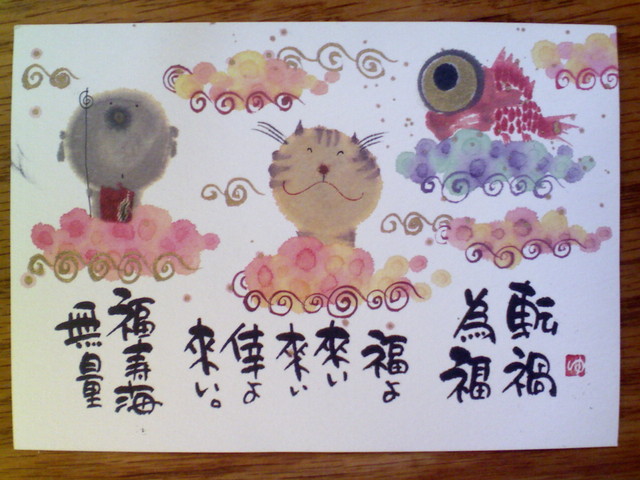 転禍
為福
ゆ
福よ
来い
来い
倖よ
来い。
福寿海
無量